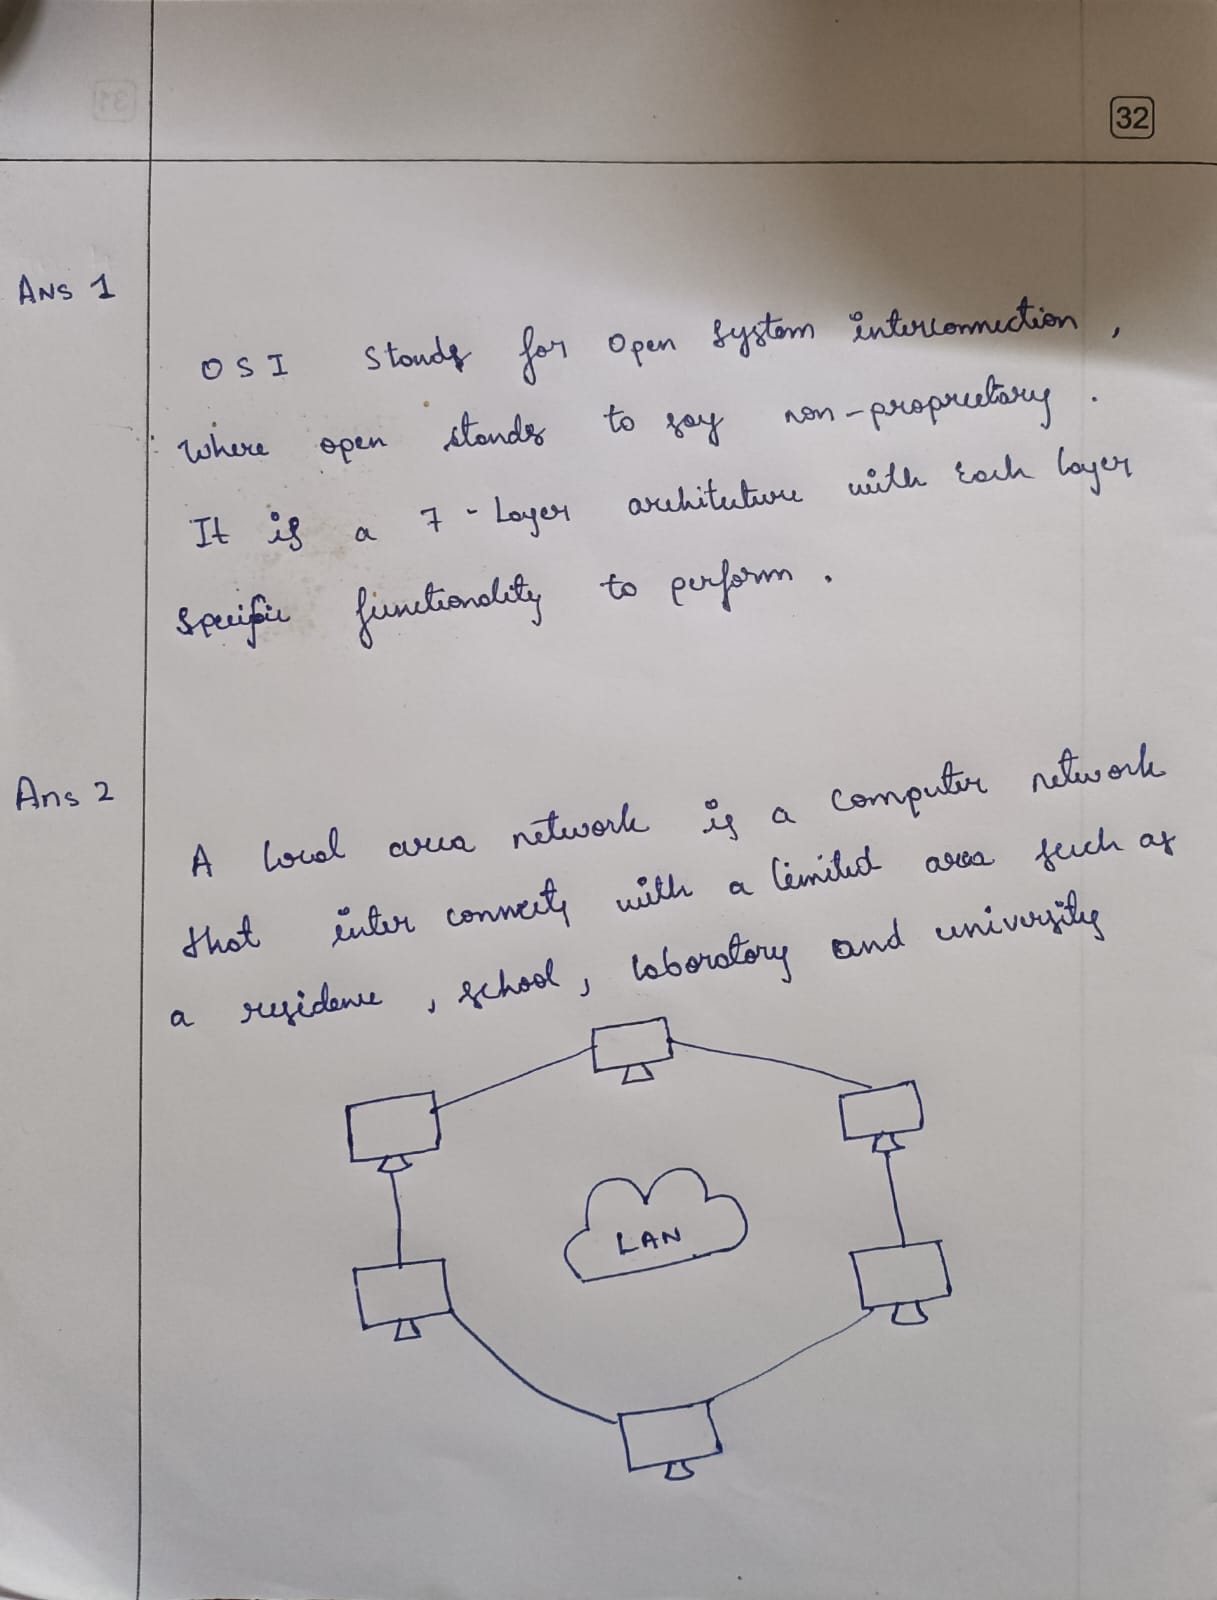 32
Ans 1
OSI stands for open system interconnection,
where open stands to say non-proprietary.
It is a 7-Layer architecture with Each layer
specific functionality to perform.
Ans 2
A local area network is a computer network
that inter connects with a limited area such as
a residence, school, laboratory and university
LAN